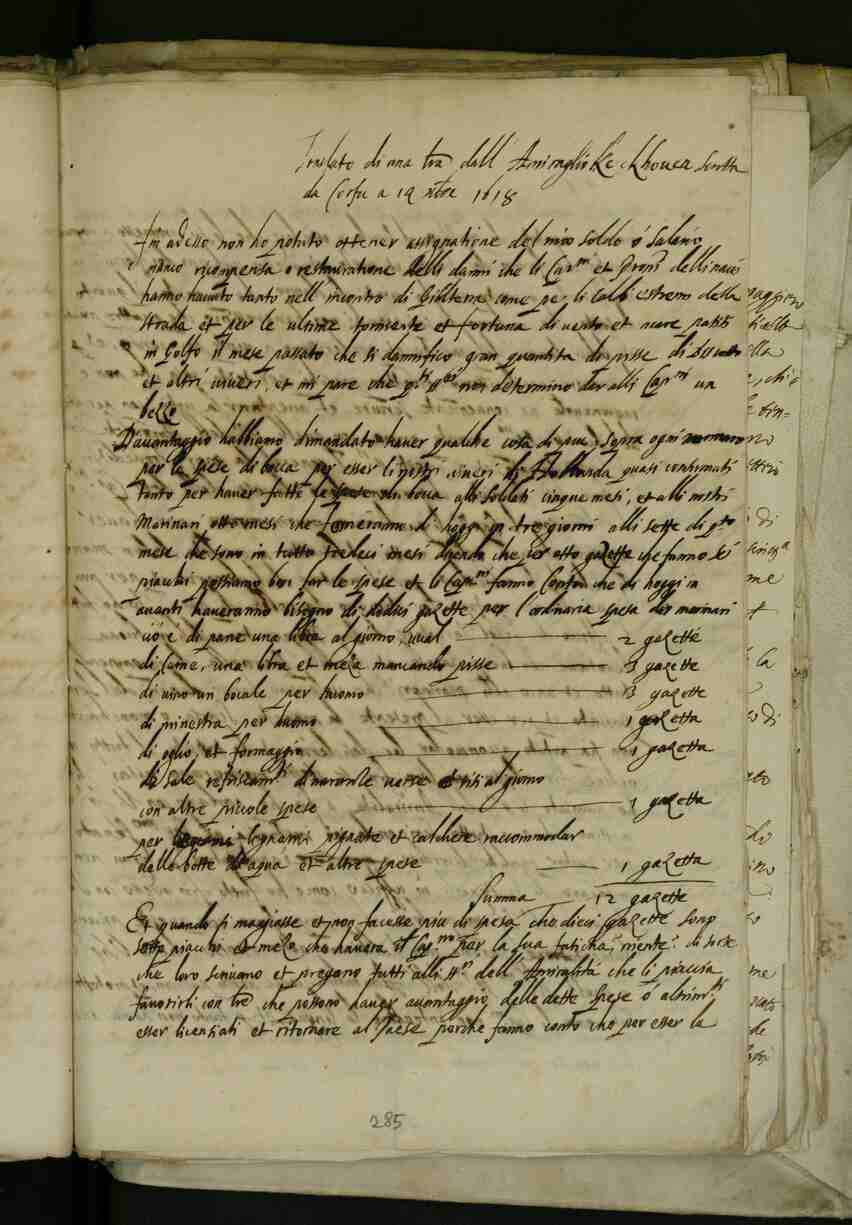 Traslato di una lra dell' Amiraglio scritta
da Corfu a 19 xbre 1618
Fin adesso non ho potuto ottener assignatione del mio soldo ó salario
manco ricompensa o restauratione delli danni che li Capni et delli navi
hanno havuto tanto nell incontro di Gibilterra come per li caldi estremi della
strada et per le ultime tormente et fortuna di vento et mare patiti
in Golfo il mese passato che si damnifico gran quantita di pisse di
et altri viveri, et mi pare che non determino dar alli Capni un
bezzo
Davantaggio habbiamo dimandato haver qualche cosa di piu sopra ogni
per le spese di bocca per esser li nostri viveri di Hollanda quasi consumati
tanto per haver fatte le spese di bocca alli soldati cinque mesi, et alli nostri
Marinari otto mesi che di hoggi in tre giorni alli sette di qto
mese che sono in tutto tredeci mesi dicendo che per otto gazette che fanno sei
piacchi possiamo ben far le spese et li Capni fanno conto che di hoggi in
avanti haveranno bisogno di dodici gazette per l'ordinaria spesa dei marinari
cio e di pane una libra al giorno, val 2 gazette
di carne, una libra et meza mancando pisse 3 gazette
di vino un bocale per huomo 3 gazette
di minestra per huomo 1 gazetta
di oglio, et formaggio 1 gazetta
di sale al giorno
con altre piccole spese 1 gazetta
per legnami pignate et caldiere raccommodar
delle botte d'agua et altre spese 1 gazetta
Summa 12 gazette
Et quando si mangiasse et non facesse piu di spesa che dieci gazette sono
sette piacchi et meza che havera il Capno per la sua faticha, niente. di sorte
che loro scrivano et pregano tutti alli Sri dell' Amiralità che li piaccia
favorirli con lre che possano haver avantaggio delle dette spese ó altrimti
esser licentiati et ritornare al Paese perche fanno conto che per esser la
285